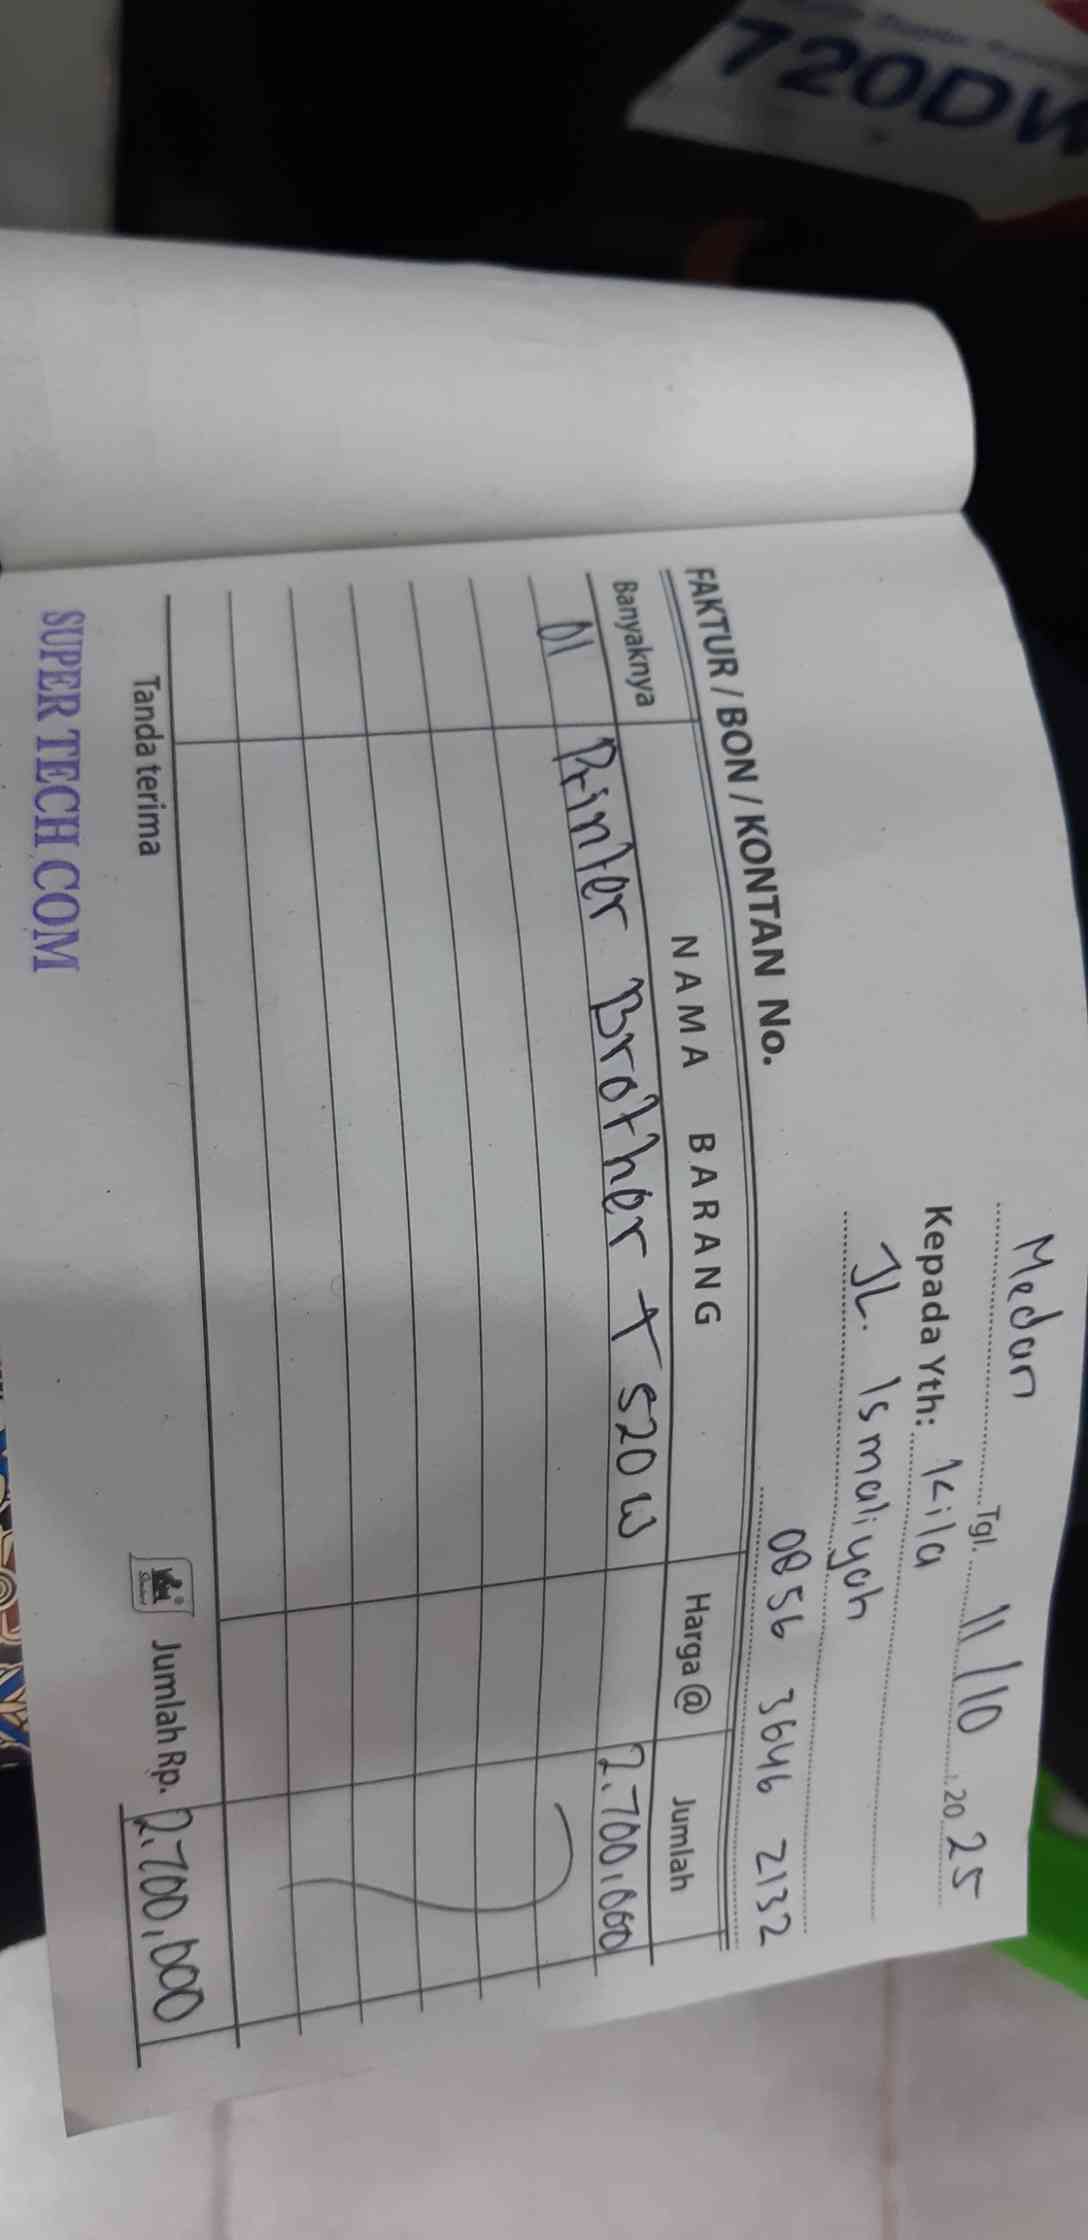 720DW
Medan Tgl. 11/10 20 25
Kepada Yth: Kila
JL. Ismaliyah
0856 3646 2132
FAKTUR / BON / KONTAN No.
Banyaknya NAMA BARANG Harga @ Jumlah
01 Printer Brother T 520 W 2.700,000
Tanda terima Jumlah Rp. 2.700,000
SUPER TECH COM